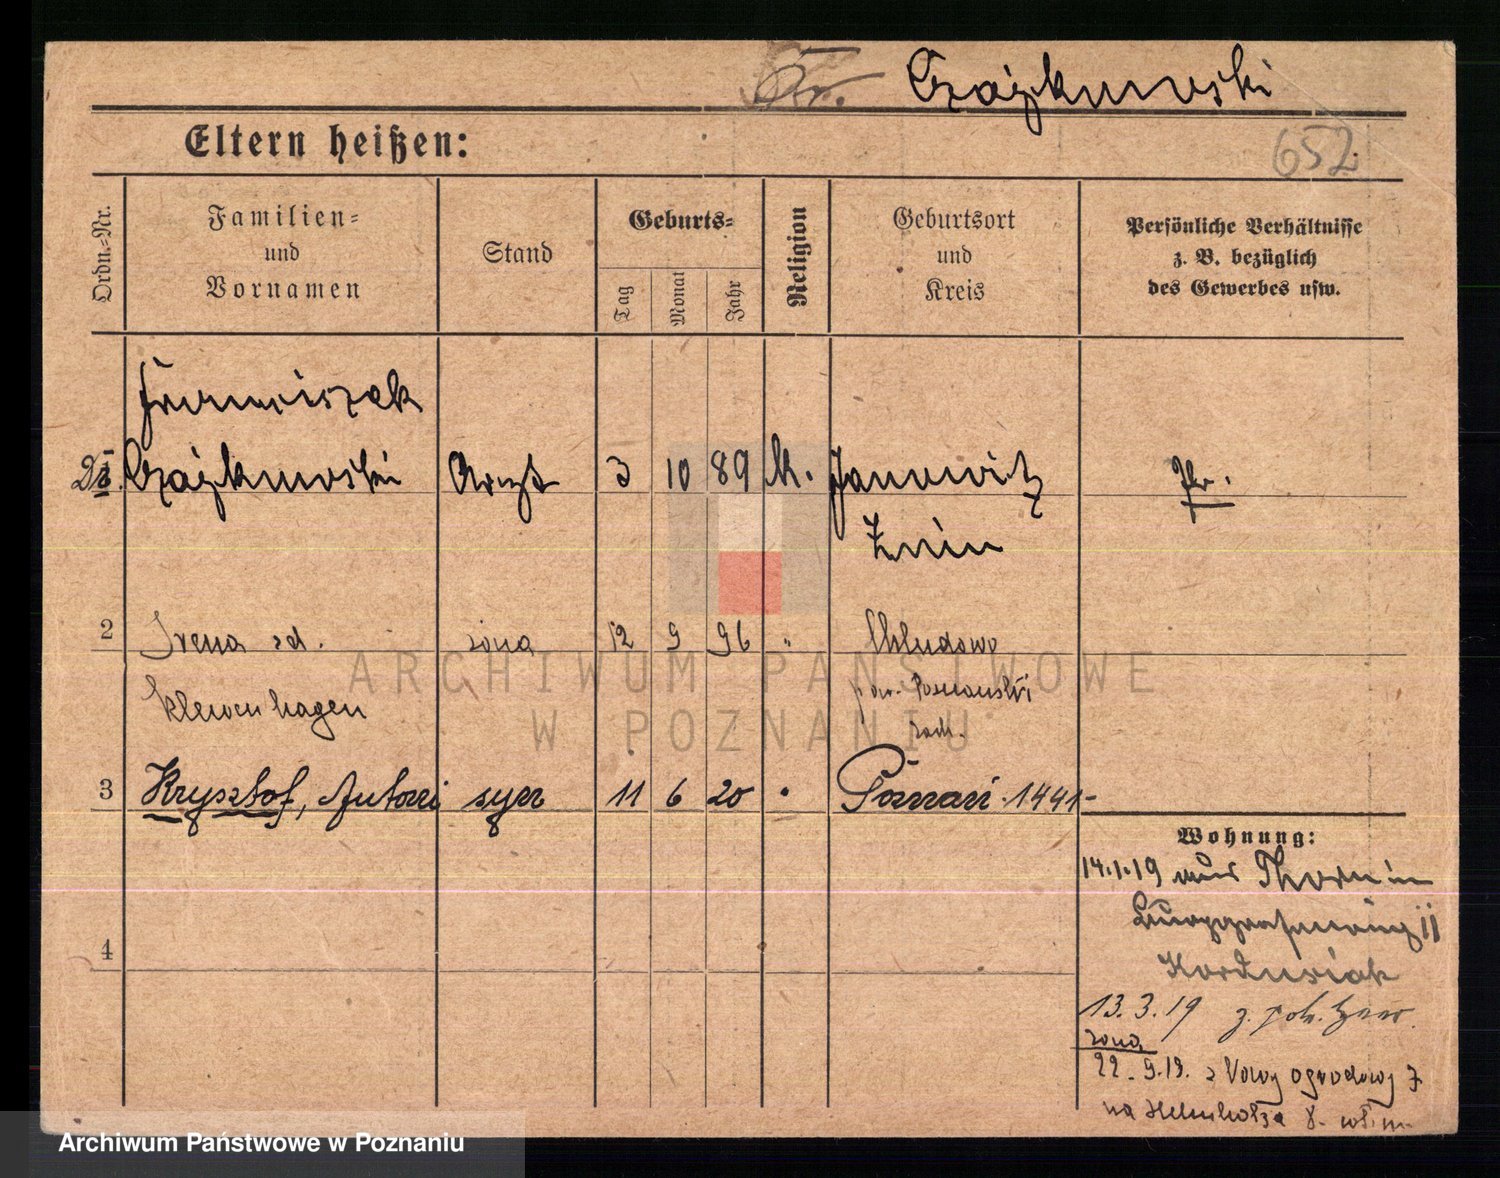 Dr. Czajkowski
Eltern heißen:
652
Ordn.-Nr.
Familien-
und
Vornamen
Stand
Geburts-
Tag
Monat
Jahr
Religion
Geburtsort
und
Kreis
Persönliche Verhältnisse
z. B. bezüglich
des Gewerbes usw.
Franciszek
Dr. Czajkowski Arzt 3 10 89 k. Janowitz Pr.
Znin
2 Irena zd. żona 12 9 96 " Chludowo
Klewenhagen pow. Poznański
zach.
3 Krysztof, Antoni syn 11 6 20 " Poznań 1441-
Wohnung:
14.1.19 aus Thorn in
Burggrafenring 11
4
13.3.19 z. poln. Heer.
żona
22.9.19. z Nowy ogrodowy 7
na Helmholza 8. wł. m.
ARCHIWUM PAŃSTWOWE
W POZNANIU
Archiwum Państwowe w Poznaniu